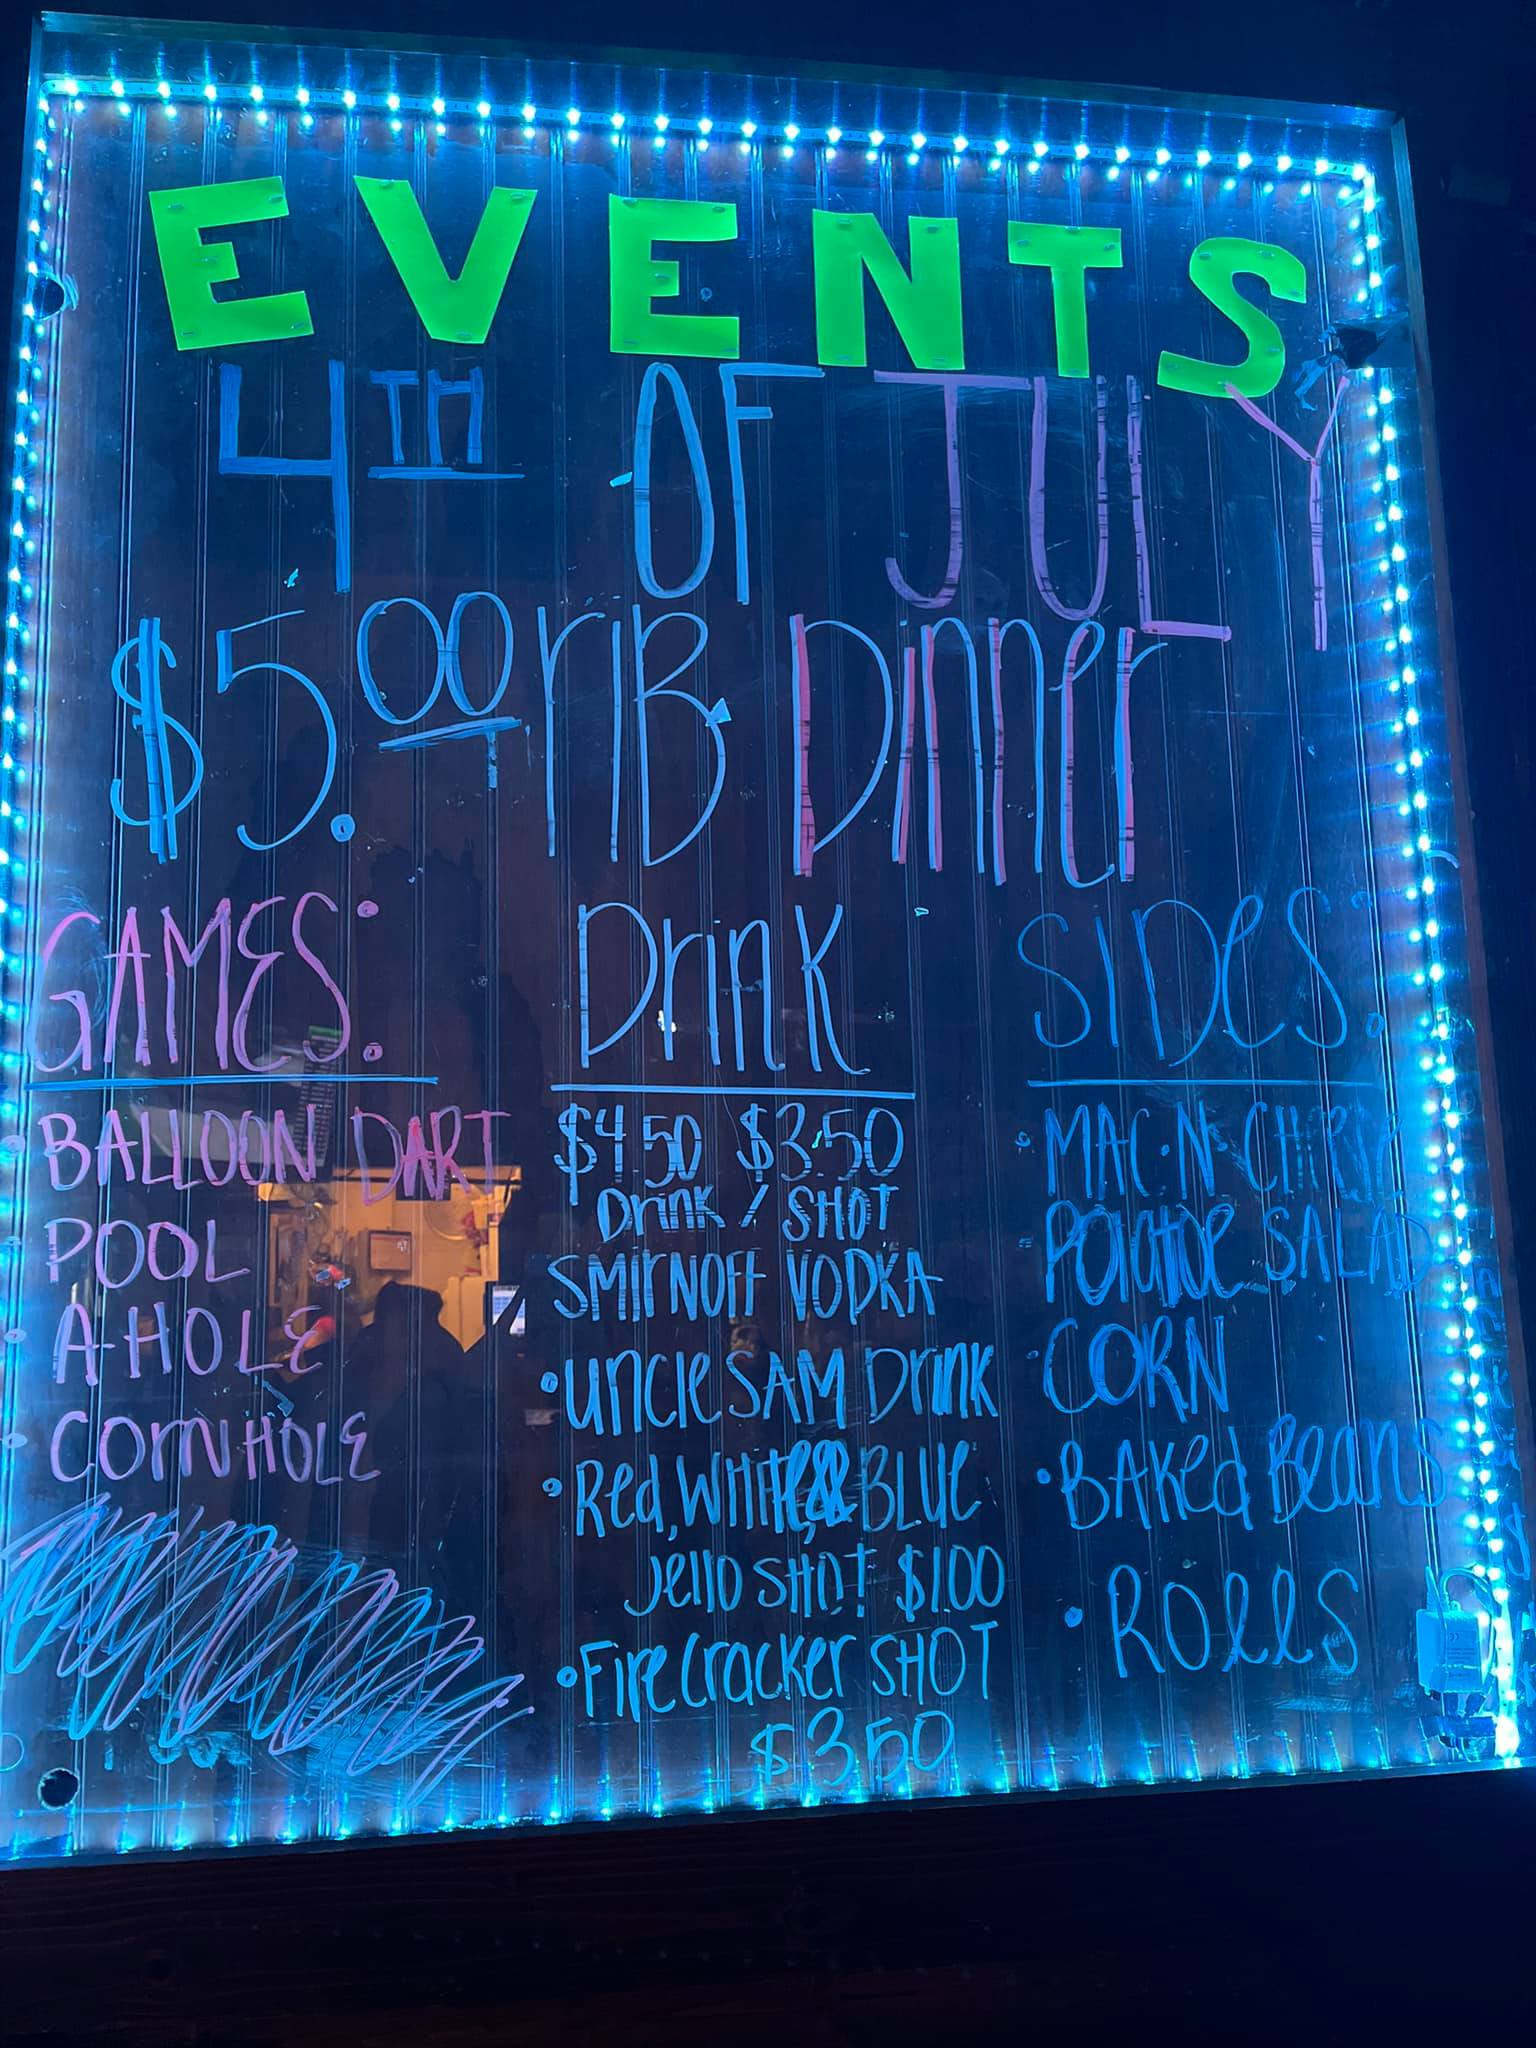 EVENTS
4TH OF JULY
$5.00 rIB Dinner
GAMES:
BALLOON DART
POOL
A-HOLE
CORNHOLE
Drink
$4.50 $3.50
Drink / SHOT
SMIrNOFF VODKA
• Uncle SAM Drink
• Red, White & BLUE
Jello SHOT $1.00
• Firecracker SHOT
$3.50
SIDES:
• MAC•N• CHEESE
POtAtOe SALAD
• CORN
• BAKed Beans
• ROllS